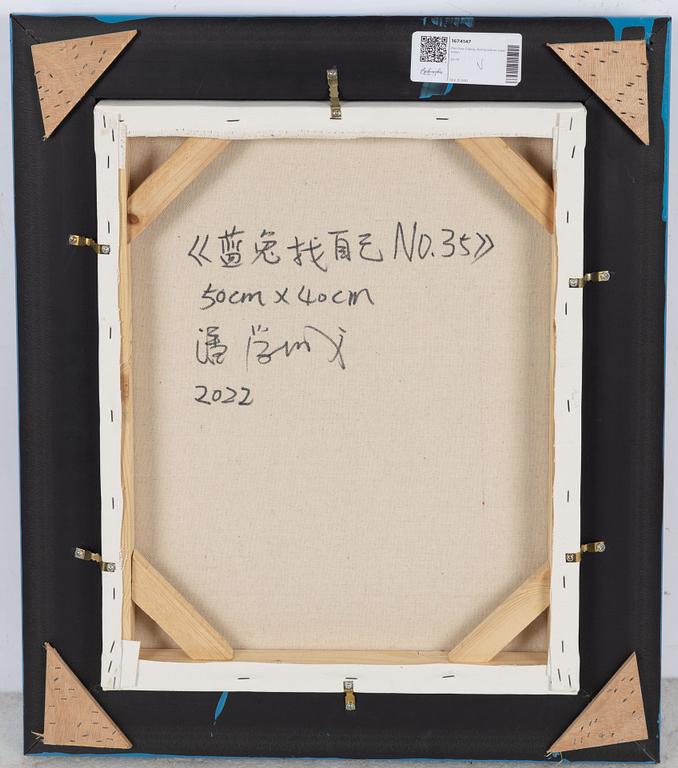 1674147
《蓝兔找自己 NO.35》
50cm x 40cm
潘
2022